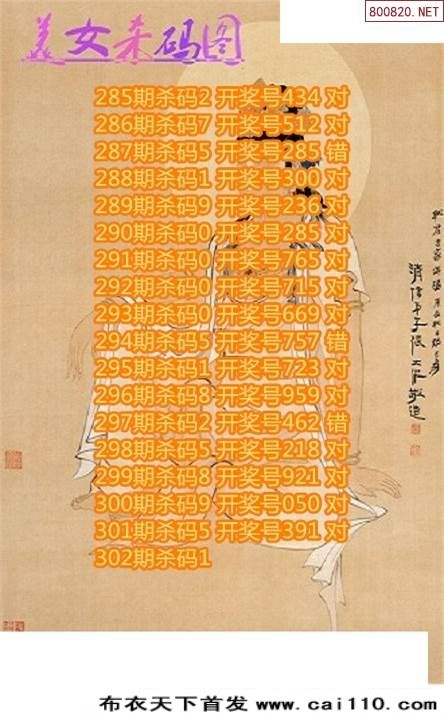 800820.NET
美女杀码图
285期杀码2 开奖号434 对
286期杀码7 开奖号512 对
287期杀码5 开奖号285 错
288期杀码1 开奖号300 对
289期杀码9 开奖号236 对
290期杀码0 开奖号285 对
291期杀码0 开奖号765 对
292期杀码0 开奖号715 对
293期杀码0 开奖号669 对
294期杀码5 开奖号757 错
295期杀码1 开奖号723 对
296期杀码8 开奖号959 对
297期杀码2 开奖号462 错
298期杀码5 开奖号218 对
299期杀码8 开奖号921 对
300期杀码9 开奖号050 对
301期杀码5 开奖号391 对
302期杀码1
布衣天下首发 www.cai110.com